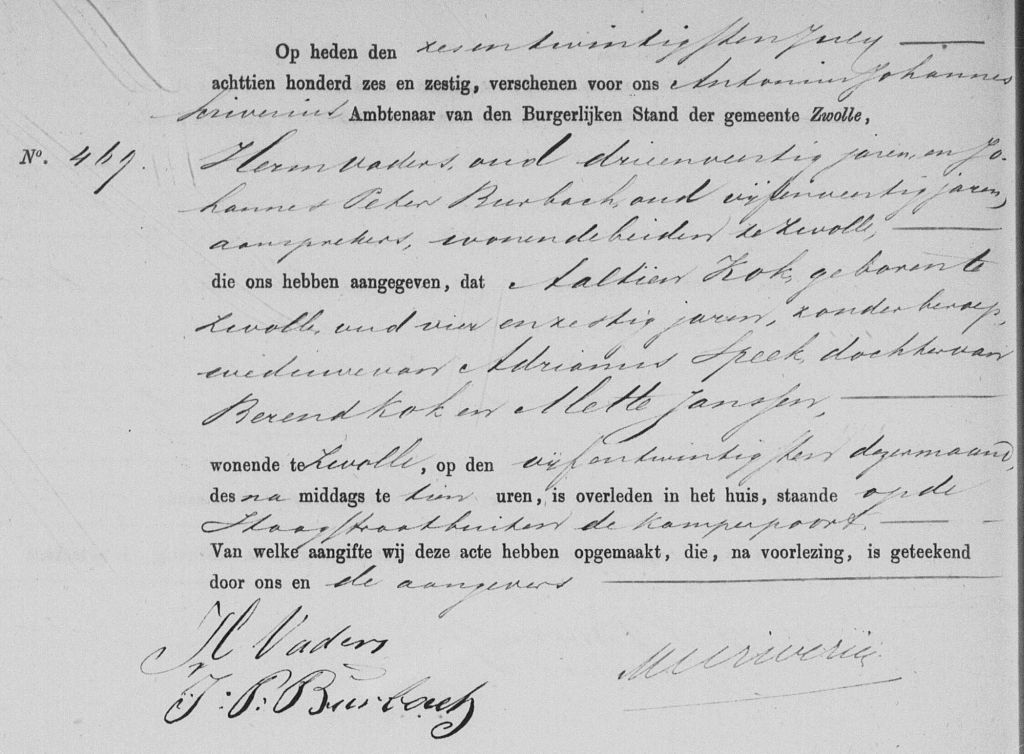 Op heden den zesentwintigsten July
achttien honderd zes en zestig, verschenen voor ons Antonius Johannes
Scriverius Ambtenaar van den Burgerlijken Stand der gemeente Zwolle,
No. 469. Herm Vaders, oud drieenveertig jaren, en Jo-
hannes Peter Burbach, oud vijfenveertig jaren,
aansprekers, wonende beiden te Zwolle,
die ons hebben aangegeven, dat Aaltien Kok, geboren te
Zwolle, oud vier en zestig jaren, zonder beroep,
weduwe van Adrianus Speek, dochter van
Berend Kok en Mette Janssen,
wonende te Zwolle, op den vijfentwintigsten dezer maand,
des na middags te tien uren, is overleden in het huis, staande op de
Hoogstraat buiten de Kamperpoort.
Van welke aangifte wij deze acte hebben opgemaakt, die, na voorlezing, is geteekend
door ons en de aangevers
H Vaders
J: P: Burbach